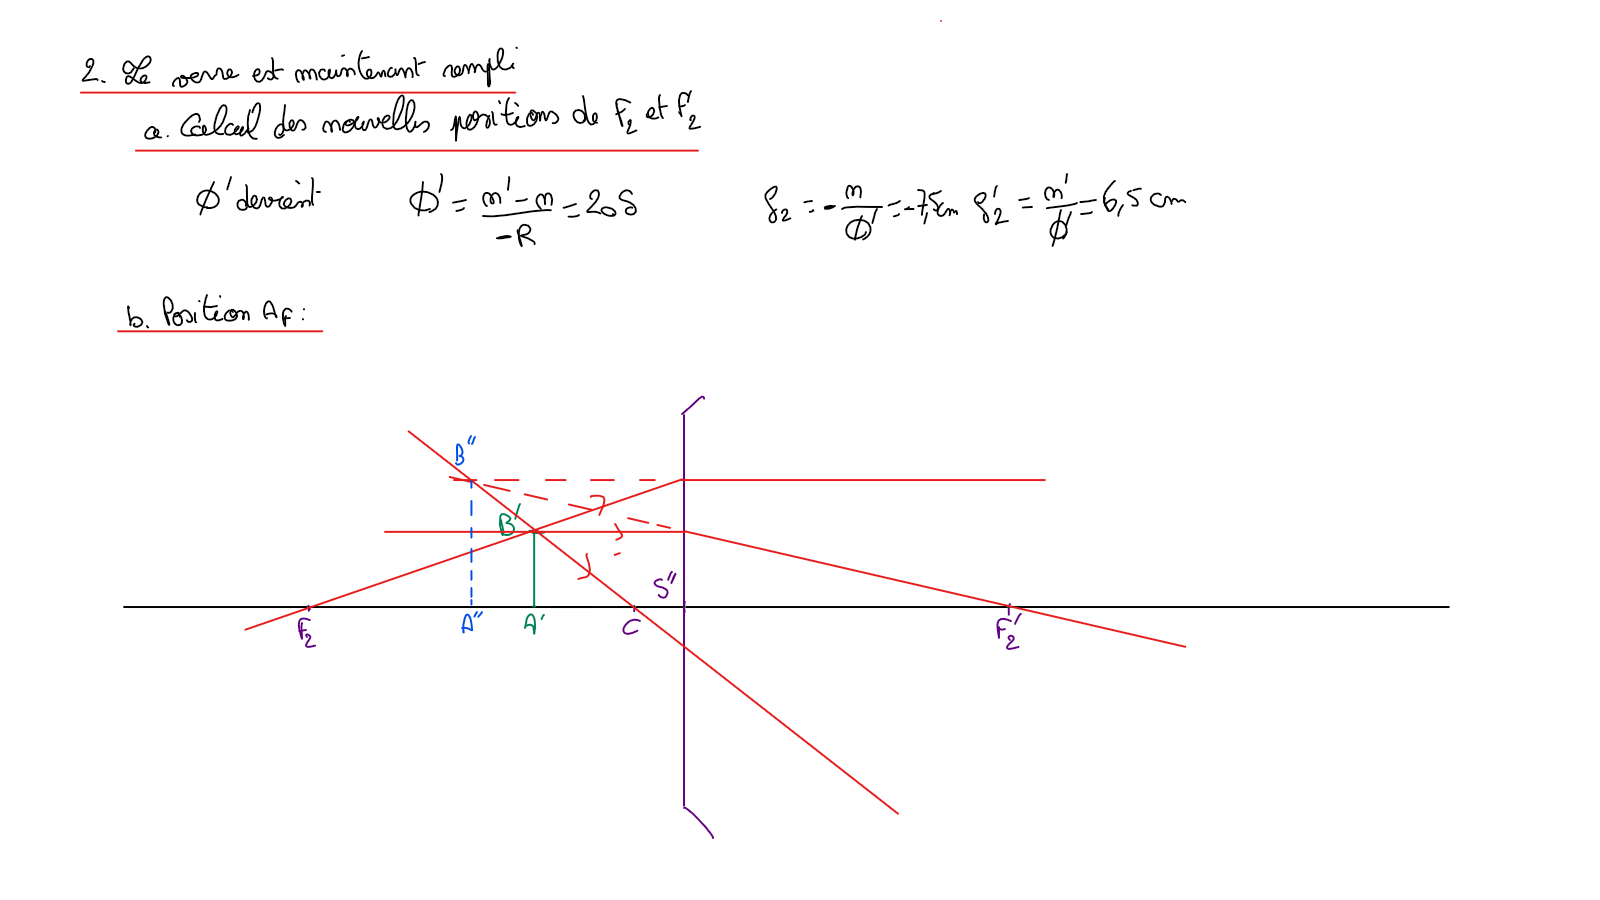 2. Le verre est maintenant rempli
a. Calcul des nouvelles positions de F₂ et F'₂
ϕ' devient ϕ' = n' - n / -R = 20 δ f₂ = - n / ϕ' = -7,5cm f'₂ = n' / ϕ' = 6,5 cm
b. Position A_F :
B"
B'
S"
F₂ A" A' C F'₂